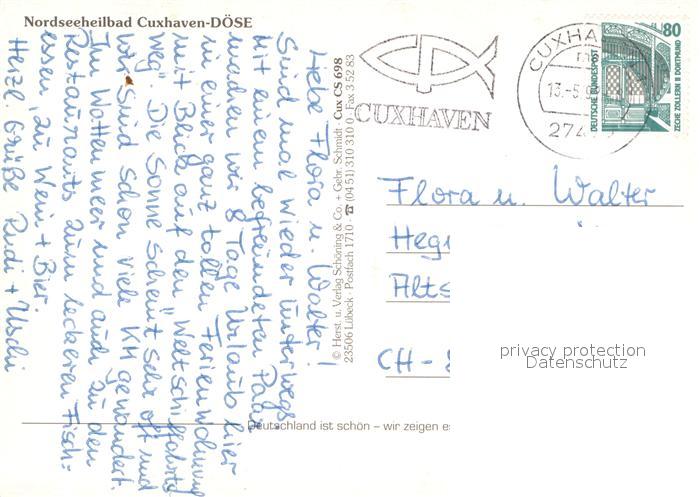 Nordseeheilbad Cuxhaven-DÖSE
Liebe Flora u. Walter!
Sind mal wieder unterwegs
Mit einem befreundeten Paar
machen wir 8 Tage Urlaub hier
in einer ganz tollen Ferienwohnung
mit Blick auf den "Weltschiffahrts
weg". Die Sonne scheint sehr oft und
wir sind schon viele KM gewandert.
Im Wattenmeer und auch zu den
Restaurants zum leckeren Fisch=
essen, zu Wein + Bier.
Herzl. Grüße Rudi + Uschi
© Herst. u. Verlag Schöning & Co. + Gebr. Schmidt · Cux CS 698
23506 Lübeck · Postfach 1710 · ☎ (04 51) 310 310 Fax 3 52 83
CUXHAVEN
CUXHA
13.-5.
274
80
DEUTSCHE BUNDESPOST
ZECHE ZOLLERN II DORTMUND
Flora u. Walter
Heg
Alts
CH -
privacy protection
Datenschutz
Deutschland ist schön – wir zeigen es